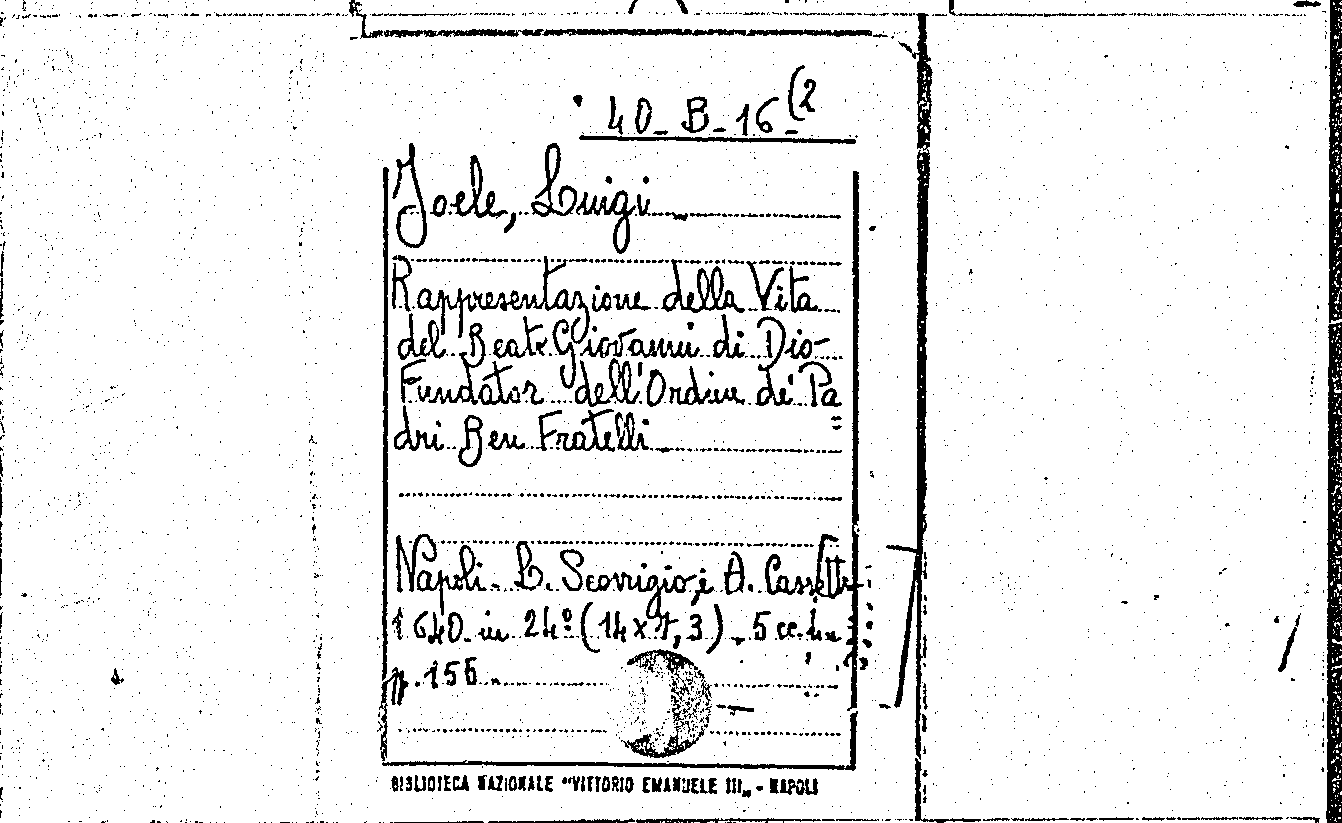 40-B-16(2
Joele, Luigi
Rappresentazione della Vita
del Beat Giovanni di Dio
Fundator dell'Ordine de' Pa
dri Ben Fratelli
Napoli. L. Scorrigio, i A. Cassetti
1640 in 24º (14x7,3). 5 cc.
p. 155.
BIBLIOTECA NAZIONALE "VITTORIO EMANUELE III„ - NAPOLI